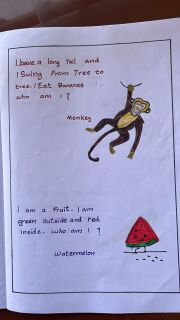 I have a long Tail and
I Swing From Tree to
tree. I Eat Bananas
who am I ?
Monkey
I am a Fruit. I am
green outside and red
Inside. who am I ?
Watermelon